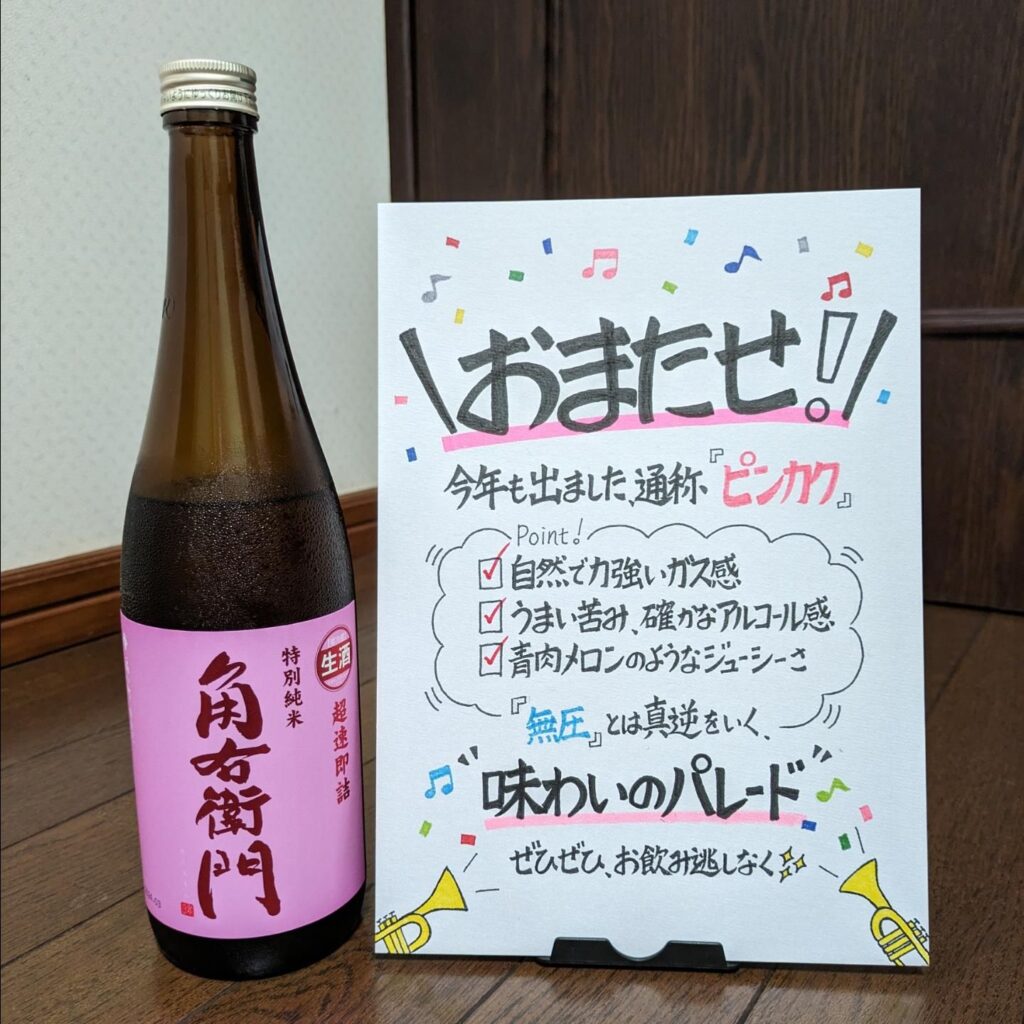 生酒
特別純米
超速即詰
角右衛門
おまたせ!
今年も出ました、通称『ピンカク』
Point!
自然で力強いガス感
うまい苦み、確かなアルコール感
青肉メロンのようなジューシーさ
『無圧』とは真逆をいく、
"味わいのパレード"
ぜひぜひ、お飲み逃しなく